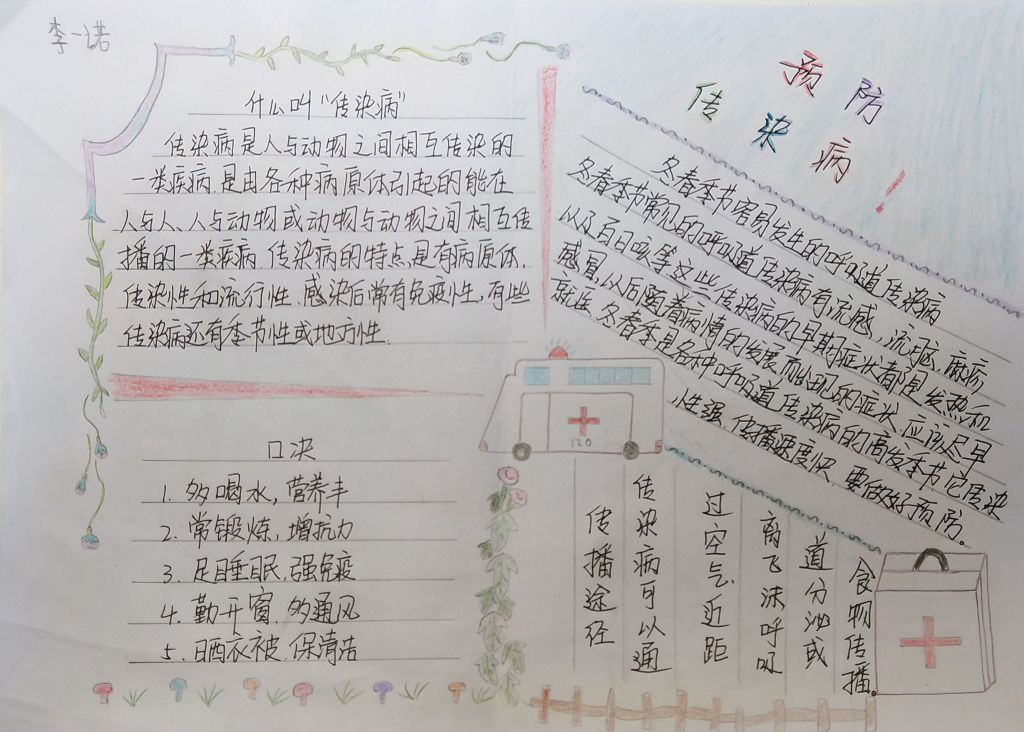 李一诺
什么叫“传染病”
传染病是人与动物之间相互传染的
一类疾病.是由各种病原体引起的能在
人与人、人与动物或动物与动物之间相互传
播的一类疾病.传染病的特点是有病原体,
传染性和流行性.感染后常有免疫性,有些
传染病还有季节性或地方性.
预防
传染病!
冬春季节容易发生的呼吸道传染病
冬春季节常见的呼吸道传染病有流感,流脑,麻疹,
以及百日咳等这些传染病的早期症状都是发热和
感冒,以后随着病情的发展而出现的症状.应该尽早
就医.冬春季是各种呼吸道传染病的高发季节它传染
性强,传播速度快.要做好预防。
口决
1. 多喝水,营养丰
2. 常锻炼,增抗力
3. 足睡眠.强免疫
4. 勤开窗.多通风
5. 晒衣被.保清洁
120
传播途径
传染病可以通
过空气.近距
离飞沫呼吸
道分泌或
食物传播。